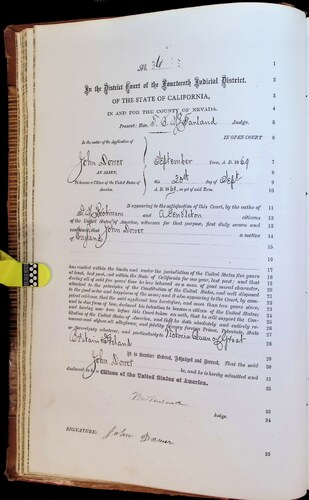 In the District Court of the Fourteenth Judicial District,
OF THE STATE OF CALIFORNIA,
IN AND FOR THE COUNTY OF NEVADA.
Present: Hon. T. B. McFarland Judge.
IN OPEN COURT
In the matter of the Application of
John Dower
AN ALIEN,
To become a Citizen of the United States of
America.
September Term, A. D. 1869
this day of Sept
A. D. 1869, as yet of said Term.
It appearing to the satisfaction of this Court, by the oaths of
and citizens
of the United States of America, witnesses for that purpose, first duly sworn and
examined, that John Dower a native
of England
has resided within the limits and under the jurisdiction of the United States five years
at least, last past, and within the State of California for one year, last past; and that
during all of said five years' time he has behaved as a man of good moral character,
attached to the principles of the Constitution of the United States, and well disposed
to the good order and happiness of the same; and it also appearing to the Court, by competent evidence, that the said applicant has heretofore, and more than two years since,
and in due form of law, declared his intention to become a citizen of the United States;
and having now here before this Court taken an oath, that he will support the Constitution of the United States of America, and that he doth absolutely and entirely renounce and abjure all allegiance, and fidelity to every foreign Prince, Potentate, State
or Sovereignty whatever, and particularly to Victoria Queen of Great
Britain & Ireland
It is therefore Ordered, Adjudged and Decreed, That the said
John Dower be, and he is hereby admitted and
declared to be a Citizen of the United States of America.
Judge.
SIGNATURE: John Dower
1
2
3
4
5
6
7
8
9
10
11
12
13
14
15
16
17
18
19
20
21
22
23
24
25
26
27
28
29
30
31
32
33
34
35